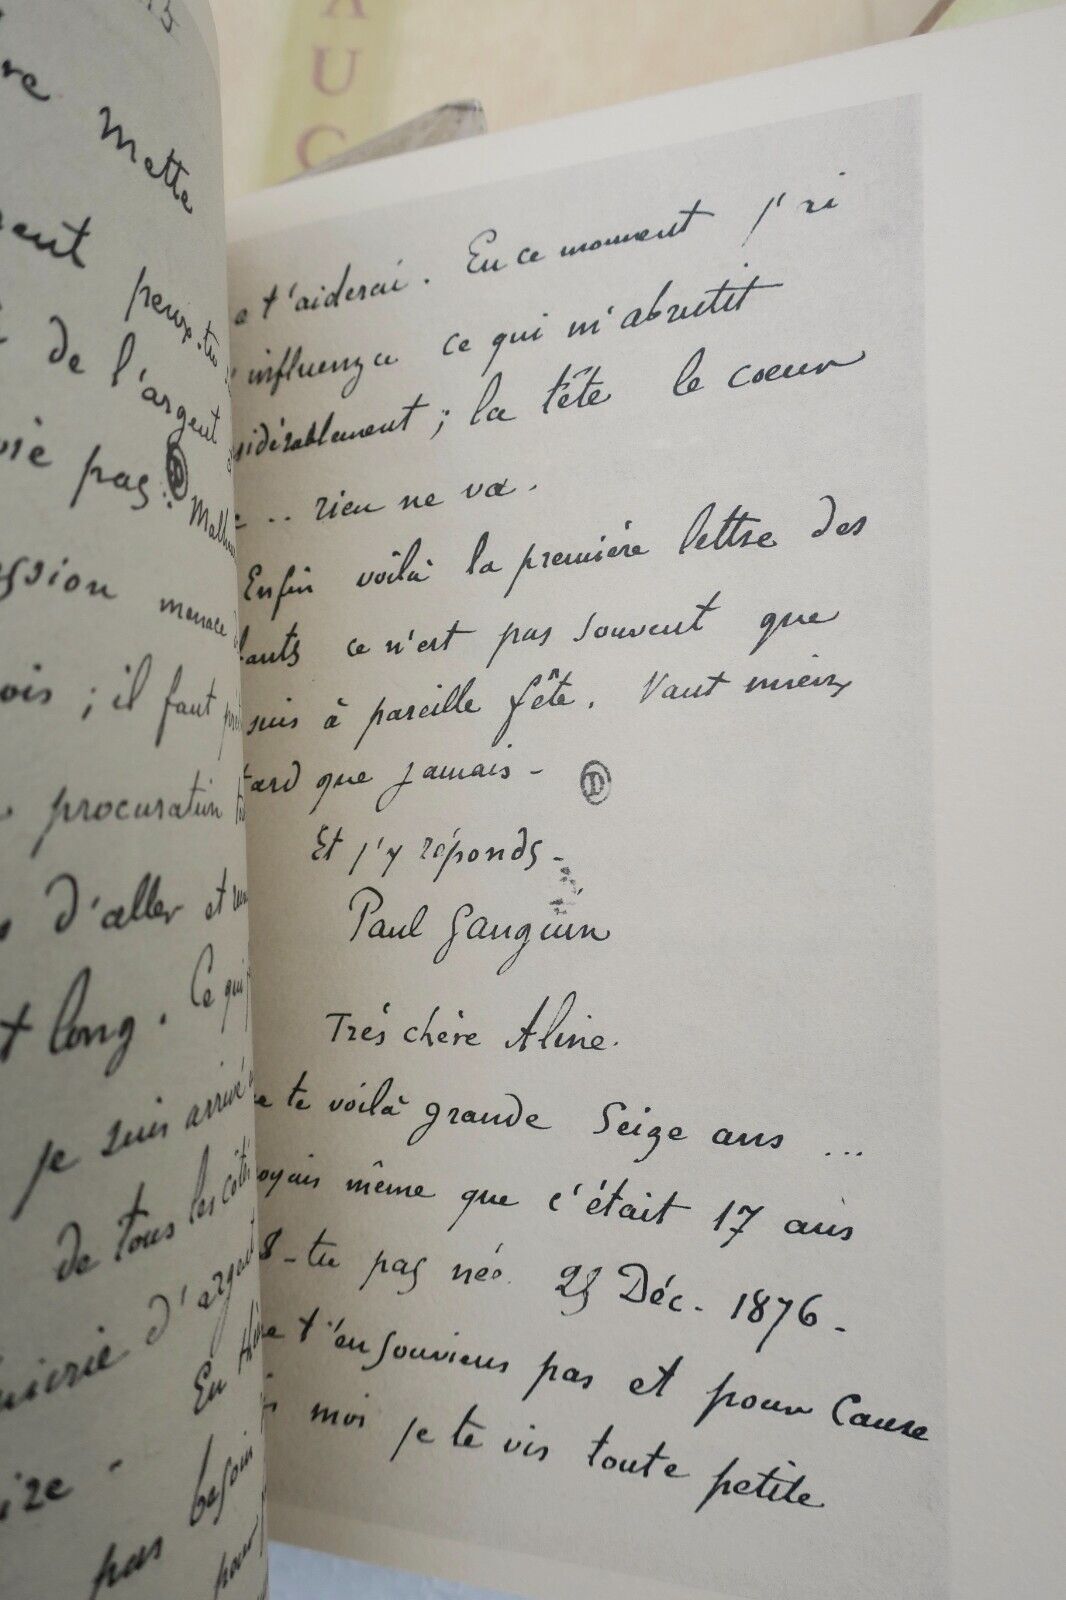 X
U
C
Mette
peux-tu
de l'argent
pas. D
menace
; il faut
procuration
d'aller et
long. Ce qui
je suis arrivé
de tous les côtés
d'argent
En
pas besoin
pour
t'aiderai. En ce moment j'ai
influenza ce qui m'abrutit
sidérablement; la tête le coeur
.. rien ne va.
Enfin voilà la première lettre des
fants ce n'est pas souvent que
suis à pareille fête. Vaut mieux
tard que jamais - D
Et j'y réponds -
Paul Gauguin
Très chère Aline.
te voilà grande Seize ans ...
oyais même que c'était 17 ans
s-tu pas née 25 Déc. 1876 -
t'en souviens pas et pour Cause
moi je te vis toute petite